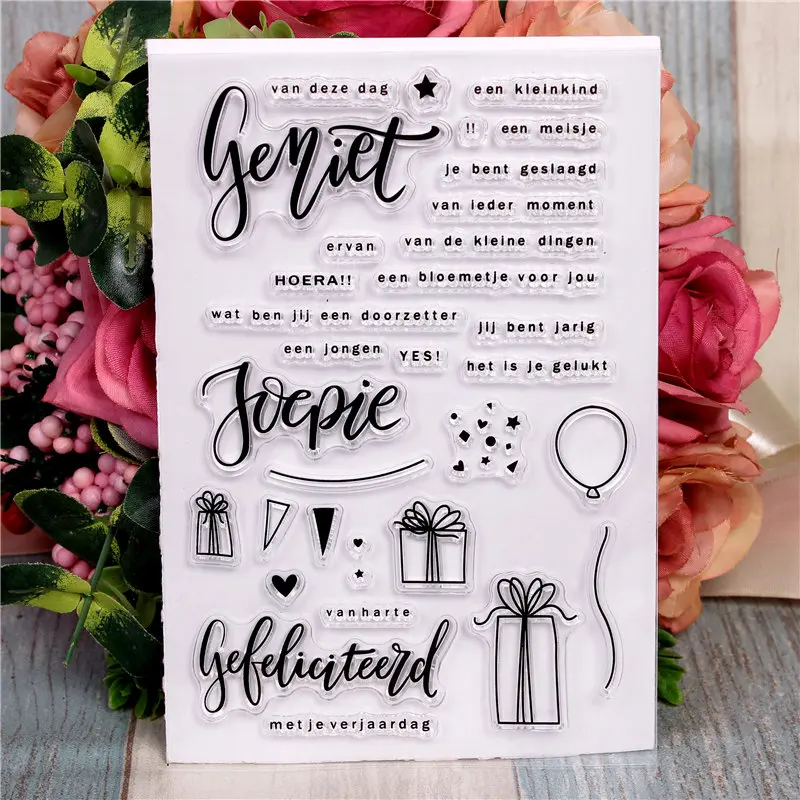 van deze dag
een kleinkind
Geniet
!!
een meisje
je bent geslaagd
van ieder moment
ervan
van de kleine dingen
HOERA!!
een bloemetje voor jou
wat ben jij een doorzetter
jij bent jarig
een jongen
YES!
het is je gelukt
Joepie
van harte
Gefeliciteerd
met je verjaardag